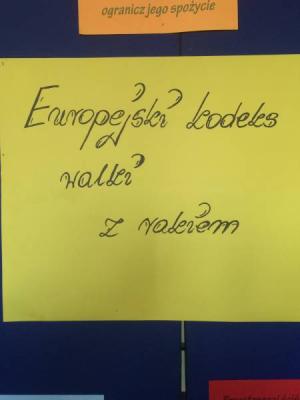 ogranicz jego spożycie
Europejski kodeks
walki
z rakiem